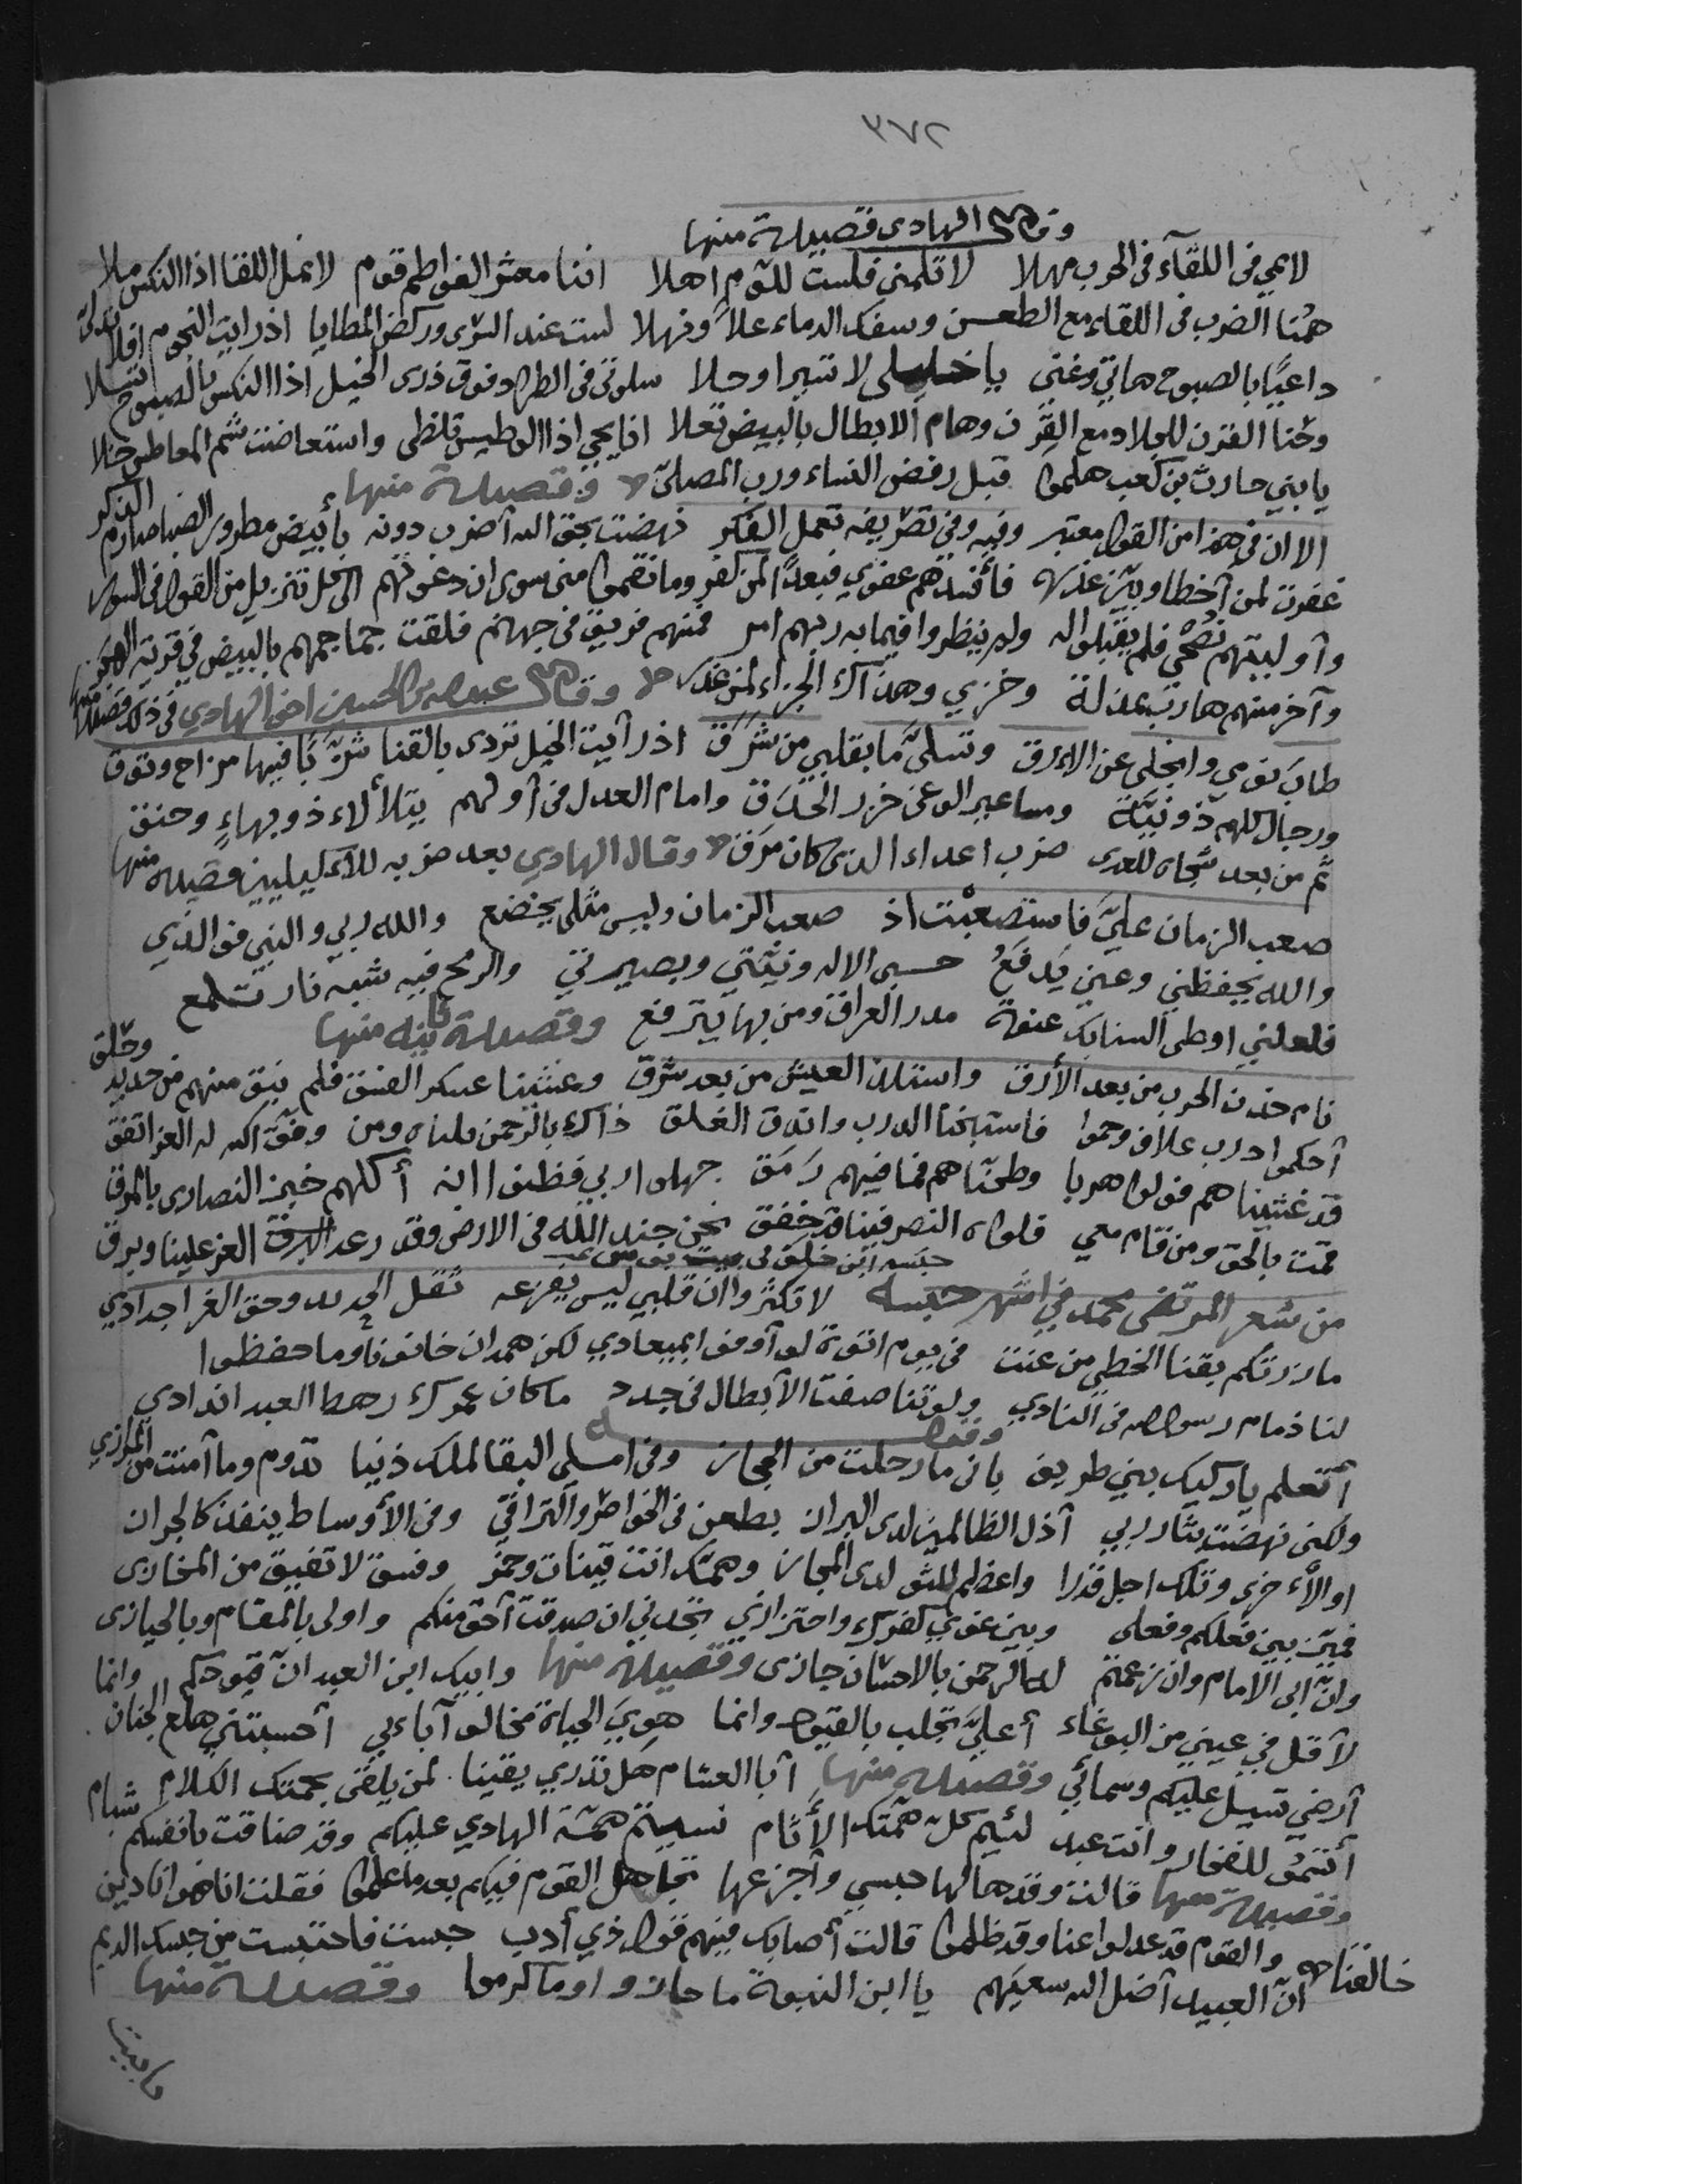 ٣٧٢
وقال الهادي قصيدة منها
لايمي في اللقآء في الحرب مهلا لا تلمني فلست للوم اهلا اننا معشر الفواطم قوم لا نمل اللقا اذا النكس ملا
همنا الضرب في اللقاء مع الطعن وسفك الدماء علاً ونهلا لست عند السرى وركض المطايا اذ رايت النجوم افلا
داعيًا بالصبوح هاتي وغني يا خليلي لا تسيرا وحلا سلوتي في الطراد فوق ذرى الخيل اذا النكس بالصبوح
وحُنا القرن للجلاد مع القرن وهام الابطال بالبيض تعلا اذا الوطيس تلظى واستعاضت شم المعاطس
يا بني حارث بن كعب هلموا قبل رفض النساء ورب المصلى وقصيدة منها
الا ان في هذا من القول معتبر وفيه وفي تصريفه تعمل الفكر نهضت بحق الله اضرب دونه بأبيض مطرور الضبا صارم الذكر
غفرت لمن اخطا وبين عذره فأفسدهم عفوي فبعدًا لمن كفر وما نقموا مني سوى ان دعوتهم الى كل تنزيل من القول في السور
وأوليتهم نُصْحي فلم يقبلوا له ولم ينظروا فيما به ربهم امر فمنهم فريق في جهنم فلقت جماجمهم بالبيض في قرية الهجر
وآخر منهم هارب بمذلة وخزي وهذاك الجزاء لمن غدر وقال عبدالله بن الحسين اخو الهادي في ذلك قصيدة منها
طاب نومي وانجلى عن الارق وتسلى ما بقلبي من شَرَق اذ رأيت الخيل تردى بالقنا شُزَّبًا فيها مراح ونزق
ورجال كلهم ذو نيّة ومساعير الوغى خزر الحدق وامام العدل في أولهم يتلألاء ذو بهاءٍ وحنق
ثم من بعد شجاه للعدى ضرب اعداء الذي كان مرق وقال الهادي بعد ضربه للاكيليين قصيدة منها
صعب الزمان عليَّ فاستصعبْت اذ صعب الزمان وليس مثلي يخضع والله ربي والنبي هو الذي
والله يحفظني وعني يَدفَعُ حسبي الاله ونيّتي وبصيرتي والرمح فيه شبه نار تلمع
فلعلني اوطي السنابك عنوة مدر العراق ومن بها يترفع وقصيدة ثانية منها
نام خدن الحرب من بعد الأرق واستلذ العيش من بعد شرق وغشينا عسكر الفسق فلم نبق منهم من حديد وحلق
أحكموا درب علاف وحموا فاستبحنا الدرب واندق الغلق ذاك بالرحمن نلناه ومن وفّق الله له العز اتفق
قد غشيناهم فولوا هربا وطحنّاهم فما فيهم رَمَق جهلوا ربي فظنوا انه أكلهم خبز النصارى بالمرق
قمت بالحق ومن قام معي فلواه النصر فينا قد خفق نحن جند الله في الارض وقد رعد البرق العز علينا وبرق
من شعر المرتضى محمد في اشهر حبسه لا تكثروا ان قلبي ليس يفزعه ثقل الحديد وحق الغر اجدادي
ما زرتكم بقنا الخطي من عنت في يوم اتوة لو أوفوا بميعادي لكن همدان خانونا وما حفظوا
لنا ذمام رسول الله في النادي ولو تناصفت الأبطال في جدد ما كان عمرك رهط العبد اندادي
وقوله
أتعلم يا ركيك بني طريف باني ما رحلت من الحجاز وفي املي البقا لملك دنيا تدوم وما أمنت من المرازي
ولكني نهضت بثار ربي أذل الظالمين لدى البراز بطعن في الخواطر والتراقي وفي الأوساط ينفذ كالجراز
او الأخرى وتلك اجل قدرا واعظم للثو لدى المجاز وهمتك انت قينات وخمر وفسق لا تفيق من المخازى
فميّز بين فعلكم وفعلي وبين غوي كفرك واحترازي تجدني ان صدقت أحق منكم واولى بالمقام وبالحيازى
وانّ ابي الامام وان زعمتم له الرحمن بالاحسان جازى وقصيدة منها وابيك ابن العبد ان قيودكم وانما
لأقل في عيني من البوغاء أعليَّ تجلب بالقيود وانما هويَ الحياة مخالف آباءي أحسبتني هلع الجنان
أرضي تسيل عليكم وسمائي وقصيدة منها أبا العشام هل تدري يقينا لمن يلقى بحمتك الكلام
أتنتمي للفخار وانت عبد لئيم كل همتك الأثام نسيتم همّة الهادي عليكم وقد ضاقت بانفسكم شبام
وقصيدة منها قالت وقد هالها حبسي وأجزعها تجاهل القوم فيكم بعد ما علموا فقلت اناهم انا دين
خالقنا والقوم قد عدلوا عنا وقد ظلموا قالت أصابك فيهم قول ذي أدب حبست فاحتبست من حبسك الديم
ان العبيد أضل الله سعيهم يا ابن النبوة ما حازوا وما كرموا وقصيدة منها